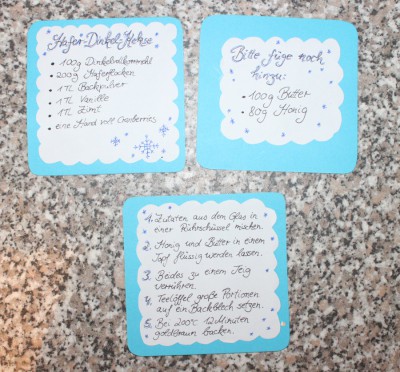 Hafer-Dinkel-Kekse
• 100g Dinkelvollkornmehl
• 200g Haferflocken
• 1TL Backpulver
• 1TL Vanille
• 1TL Zimt
• eine Hand voll Cranberries
Bitte füge noch
hinzu:
• 100g Butter
• 80g Honig
1. Zutaten aus dem Glas in
einer Rührschüssel mischen.
2. Honig und Butter in einem
Topf flüssig werden lassen.
3. Beides zu einem Teig
verrühren.
4. Teelöffel große Portionen
auf ein Backblech setzen.
5. Bei 200°C 12 Minuten
goldbraun backen.